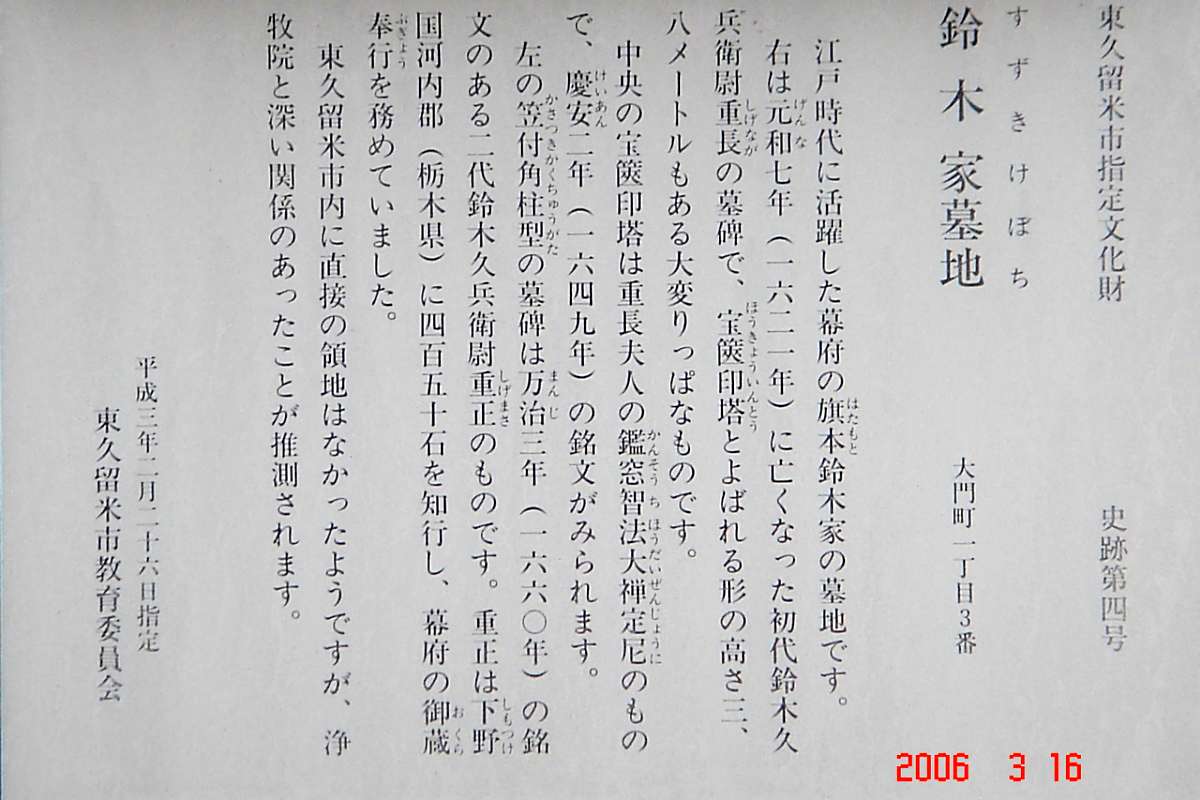 東久留米市指定文化財　史跡第四号
すずきけぼち
鈴木家墓地
大門町一丁目3番
江戸時代に活躍した幕府の旗本鈴木家の墓地です。
はたもと
右は元和七年（一六二一年）に亡くなった初代鈴木久
げんな
兵衛尉重長の墓碑で、宝篋印塔とよばれる形の高さ三、
しげなが　ほうきょういんとう
八メートルもある大変りっぱなものです。
中央の宝篋印塔は重長夫人の鑑窓智法大禅定尼のもの
かんそうちほうだいぜんじょうに
で、慶安二年（一六四九年）の銘文がみられます。
けいあん
左の笠付角柱型の墓碑は万治三年（一六六〇年）の銘
かさつきかくちゅうがた　まんじ
文のある二代鈴木久兵衛尉重正のものです。重正は下野
しげまさ　しもつけ
国河内郡（栃木県）に四百五十石を知行し、幕府の御蔵
おくら
奉行を務めていました。
ぶぎょう
東久留米市内に直接の領地はなかったようですが、浄
牧院と深い関係のあったことが推測されます。
平成三年二月二十六日指定
東久留米市教育委員会
2006 3 16